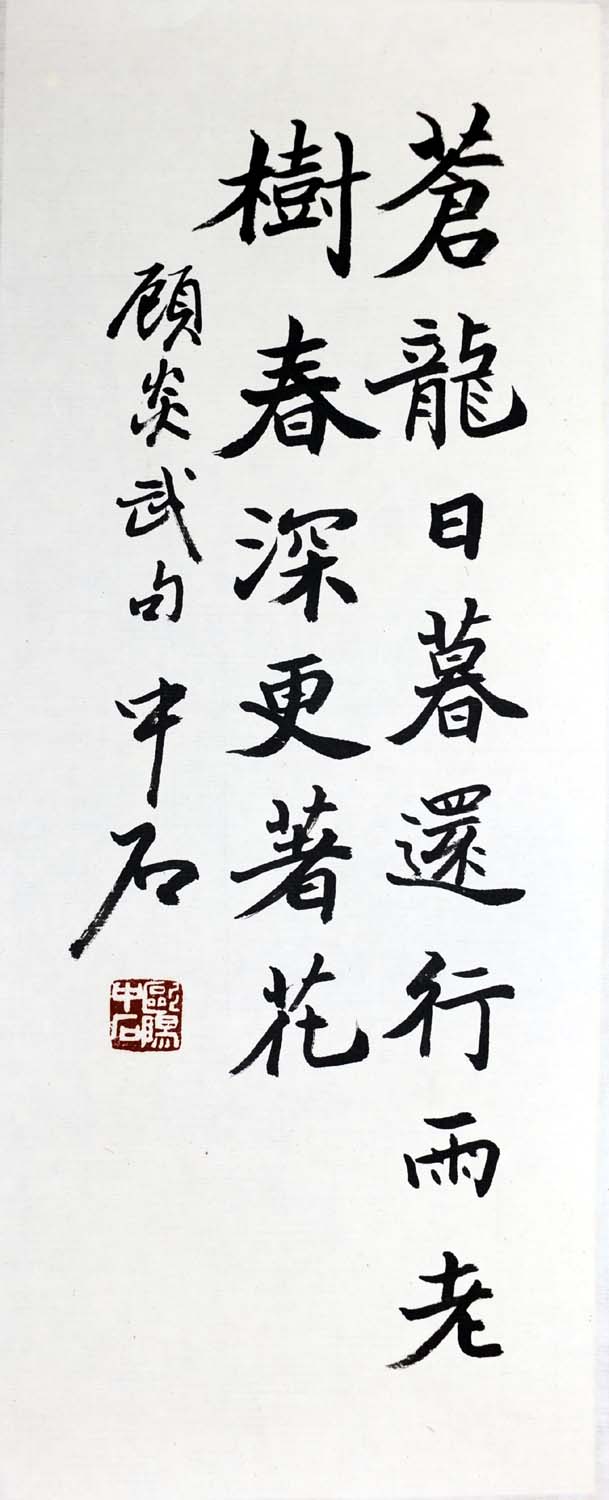 蒼龍日暮還行雨老
樹春深更著花
顧炎武句 中石
歐陽中石